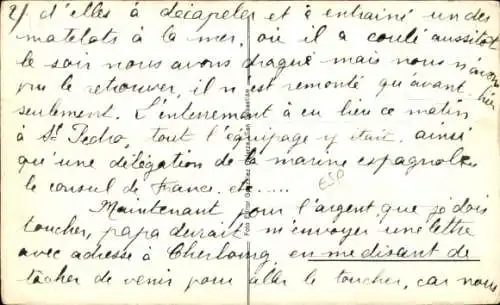 2/ d'elles à décapeler et à entrainé un des
matelats à la mer, où il a coulé aussitot
le soir nous avons dragué mais nous n'avons
pu le retrouver, il n'est remonté qu'avant-hier
seulement. L'enterrement à eu lieu ce matin
à St Pedro, tout l'équipage y était ainsi
qu'une délégation de la marine espagnole
le consul de France. etc.....
Maintenant, pour l'argent que je dois
toucher, papa devrait m'envoyer une lettre
avec adresse à Cherbourg, en me disant de
tâcher de venir pour aller le toucher, car nous
ESP